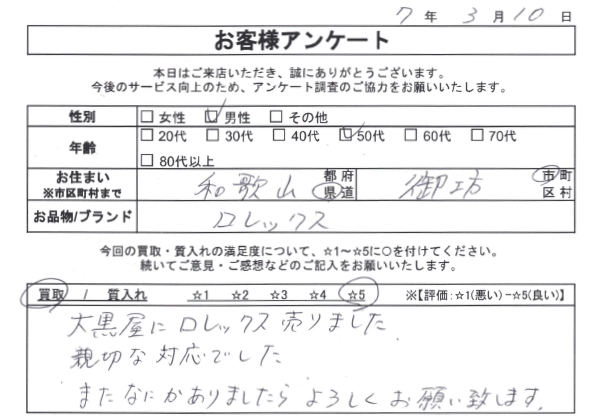 7年3月10日
お客様アンケート
本日はご来店いただき、誠にありがとうございます。
今後のサービス向上のため、アンケート調査のご協力をお願いいたします。
性別 □女性 ☑男性 □その他
年齢 □20代 □30代 □40代 ☑50代 □60代 □70代
□80代以上
お住まい ※市区町村まで 和歌山 都府県道 御坊 市町区村
お品物/ブランド ロレックス
今回の買取・質入れの満足度について、☆1～☆5に○を付けてください。
続いてご意見・ご感想などのご記入をお願いいたします。
買取 / 質入れ ☆1 ☆2 ☆3 ☆4 ☆5 ※【評価:☆1(悪い)-☆5(良い)】
大黒屋にロレックス売りました
親切な対応でした
またなにかありましたらよろしくお願い致します。